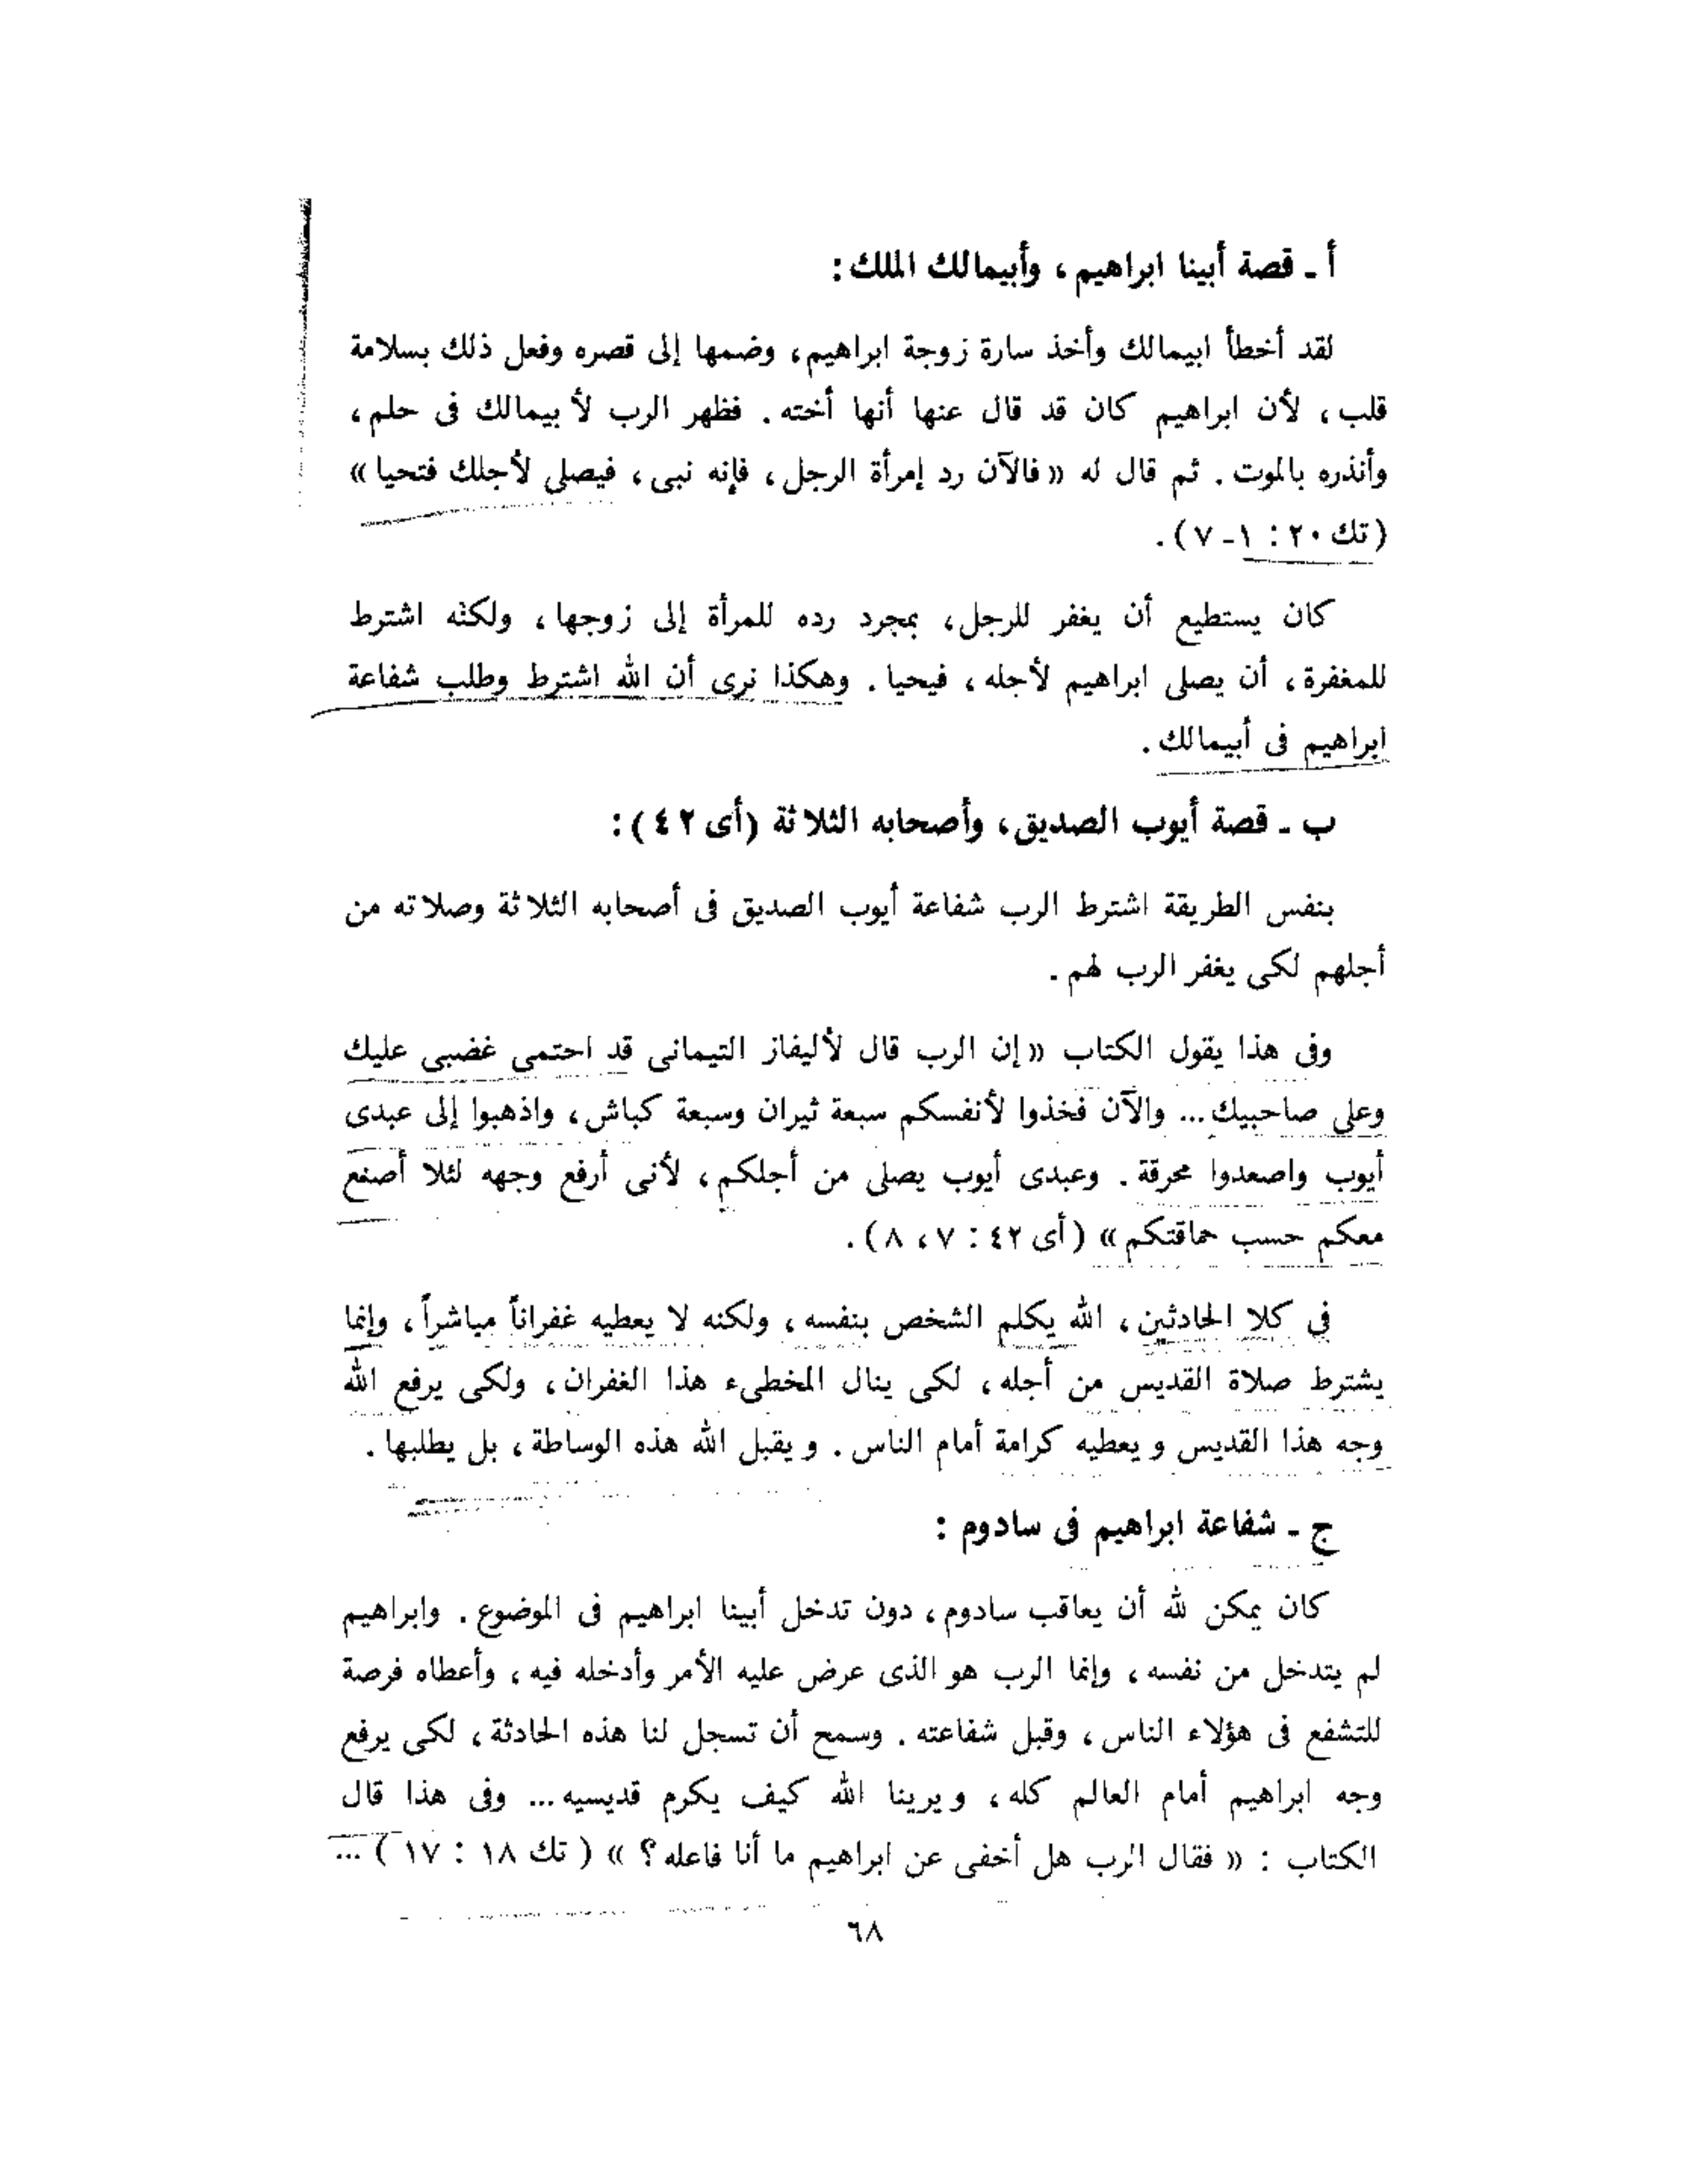 أ ـ قصة أبينا ابراهيم ، وأبيمالك الملك :
لقد أخطأ ابيمالك وأخذ سارة زوجة ابراهيم ، وضمها إلى قصره وفعل ذلك بسلامة
قلب ، لأن ابراهيم كان قد قال عنها أنها أخته . فظهر الرب لأبيمالك فى حلم ،
وأنذره بالموت . ثم قال له « فالآن رد إمرأة الرجل ، فإنه نبى ، فيصلى لأجلك فتحيا »
( تك ٢٠ : ١ ـ ٧ ) .
كان يستطيع أن يغفر للرجل ، بمجرد رده للمرأة إلى زوجها ، ولكنه اشترط
للمغفرة ، أن يصلى ابراهيم لأجله ، فيحيا . وهكذا نرى أن الله اشترط وطلب شفاعة
ابراهيم فى أبيمالك .
ب ـ قصة أيوب الصديق ، وأصحابه الثلاثة ( أى ٤٢ ) :
بنفس الطريقة اشترط الرب شفاعة أيوب الصديق فى أصحابه الثلاثة وصلاته من
أجلهم لكى يغفر الرب لهم .
وفى هذا يقول الكتاب « إن الرب قال لأليفاز التيمانى قد احتمى غضبى عليك
وعلى صاحبيك ... والآن فخذوا لأنفسكم سبعة ثيران وسبعة كباش ، واذهبوا إلى عبدى
أيوب واصعدوا محرقة . وعبدى أيوب يصلى من أجلكم ، لأنى أرفع وجهه لئلا أصنع
معكم حسب حماقتكم » ( أى ٤٢ : ٧ ، ٨ ) .
فى كلا الحادثين ، الله يكلم الشخص بنفسه ، ولكنه لا يعطيه غفراناً مباشراً ، وإنما
يشترط صلاة القديس من أجله ، لكى ينال المخطىء هذا الغفران ، ولكى يرفع الله
وجه هذا القديس ويعطيه كرامة أمام الناس . ويقبل الله هذه الوساطة ، بل يطلبها .
ج ـ شفاعة ابراهيم فى سادوم :
كان يمكن لله أن يعاقب سادوم ، دون تدخل أبينا ابراهيم فى الموضوع . وابراهيم
لم يتدخل من نفسه ، وإنما الرب هو الذى عرض عليه الأمر وأدخله فيه ، وأعطاه فرصة
للتشفع فى هؤلاء الناس ، وقبل شفاعته . وسمح أن تسجل لنا هذه الحادثة ، لكى يرفع
وجه ابراهيم أمام العالم كله ، ويرينا الله كيف يكرم قديسيه ... وفى هذا قال
الكتاب : « فقال الرب هل أخفى عن ابراهيم ما أنا فاعله ؟ » ( تك ١٨ : ١٧ ) ...
٦٨